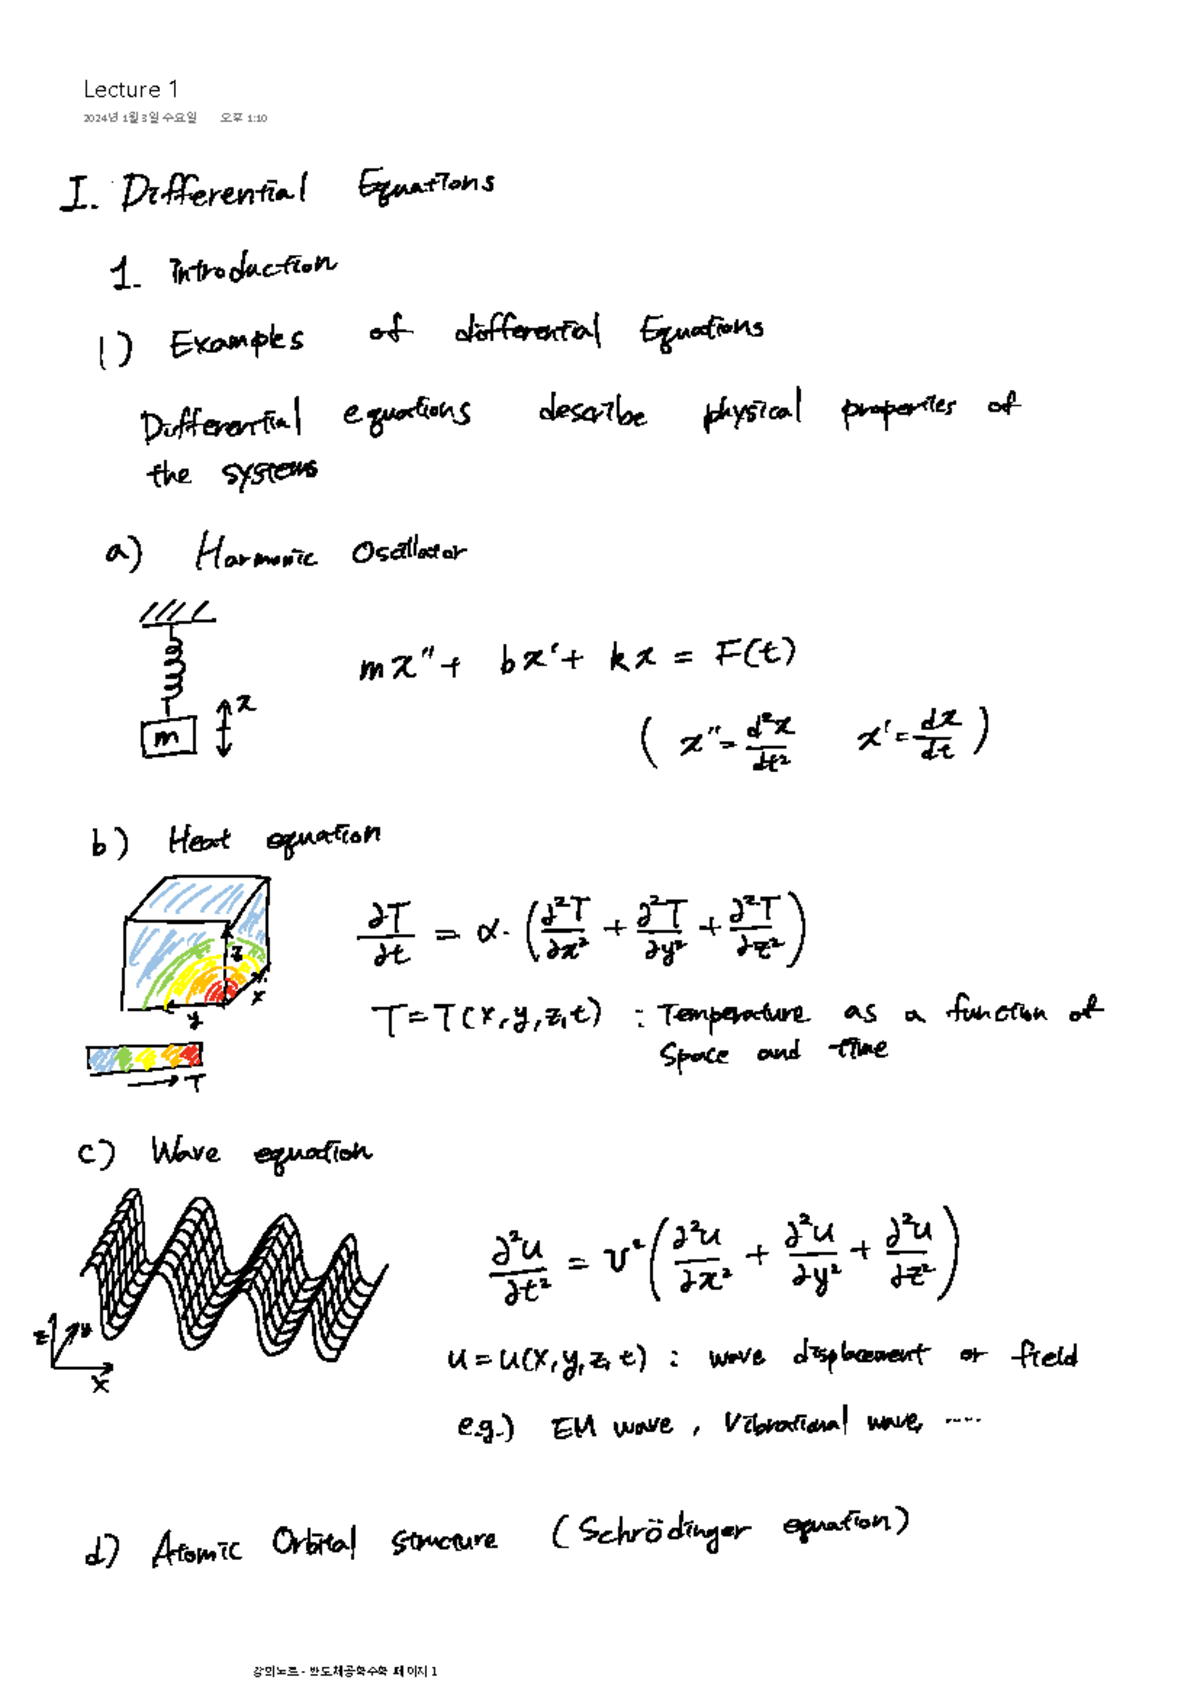 Lecture 1
2024년 1월 3일 수요일 오후 1:10
I. Differential Equations
1. Introduction
1) Examples of differential Equations
Differential equations describe physical properties of
the systems
a) Harmonic Oscillator
m
x
mx'' + bx' + kx = F(t)
( x'' = d²x/dt² x' = dx/dt )
b) Heat equation
z
x
y
T
∂T/∂t = α · (∂²T/∂x² + ∂²T/∂y² + ∂²T/∂z²)
T = T(x, y, z, t) : Temperature as a function of
Space and time
c) Wave equation
z y
x
∂²u/∂t² = v² (∂²u/∂x² + ∂²u/∂y² + ∂²u/∂z²)
u = u(x, y, z, t) : wave displacement or field
e.g.) EM wave , Vibrational wave, .....
d) Atomic Orbital structure (Schrödinger equation)
강의노트 - 반도체공학수학 페이지 1